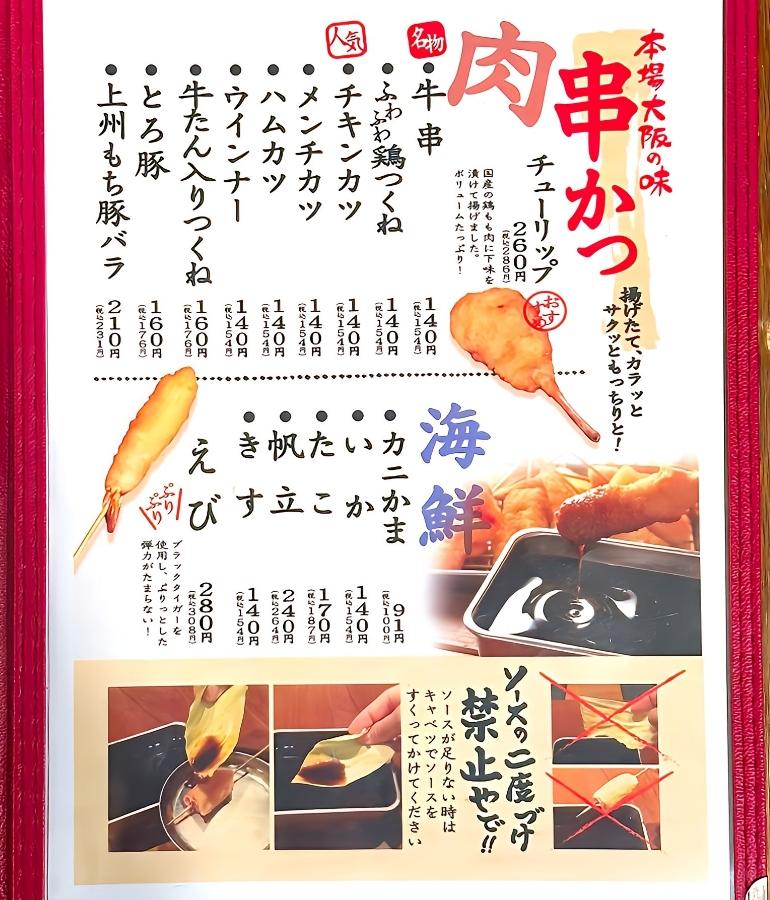 本場大阪の味
串かつ
揚げたて、カラッと
サクッともっちりと！
肉
チューリップ
260円
(税込286円)
国産の鶏もも肉に下味を
漬けて揚げました。
ボリュームたっぷり！
おすすめ
名物
●牛串
140円
(税込154円)
●ふわふわ鶏つくね
140円
(税込154円)
人気
●チキンカツ
140円
(税込154円)
●メンチカツ
140円
(税込154円)
●ハムカツ
140円
(税込154円)
●ウインナー
140円
(税込154円)
●牛たん入りつくね
160円
(税込176円)
●とろ豚
160円
(税込176円)
●上州もち豚バラ
210円
(税込231円)
海鮮
●カニかま
91円
(税込100円)
●いか
140円
(税込154円)
●たこ
170円
(税込187円)
●帆立
240円
(税込264円)
●きす
140円
(税込154円)
えび
280円
(税込308円)
ぷりぷり
ブラックタイガーを
使用し、ぷりっとした
弾力がたまらない！
ソースの二度づけ
禁止やで!!
ソースが足りない時は
キャベツでソースを
すくってかけてください